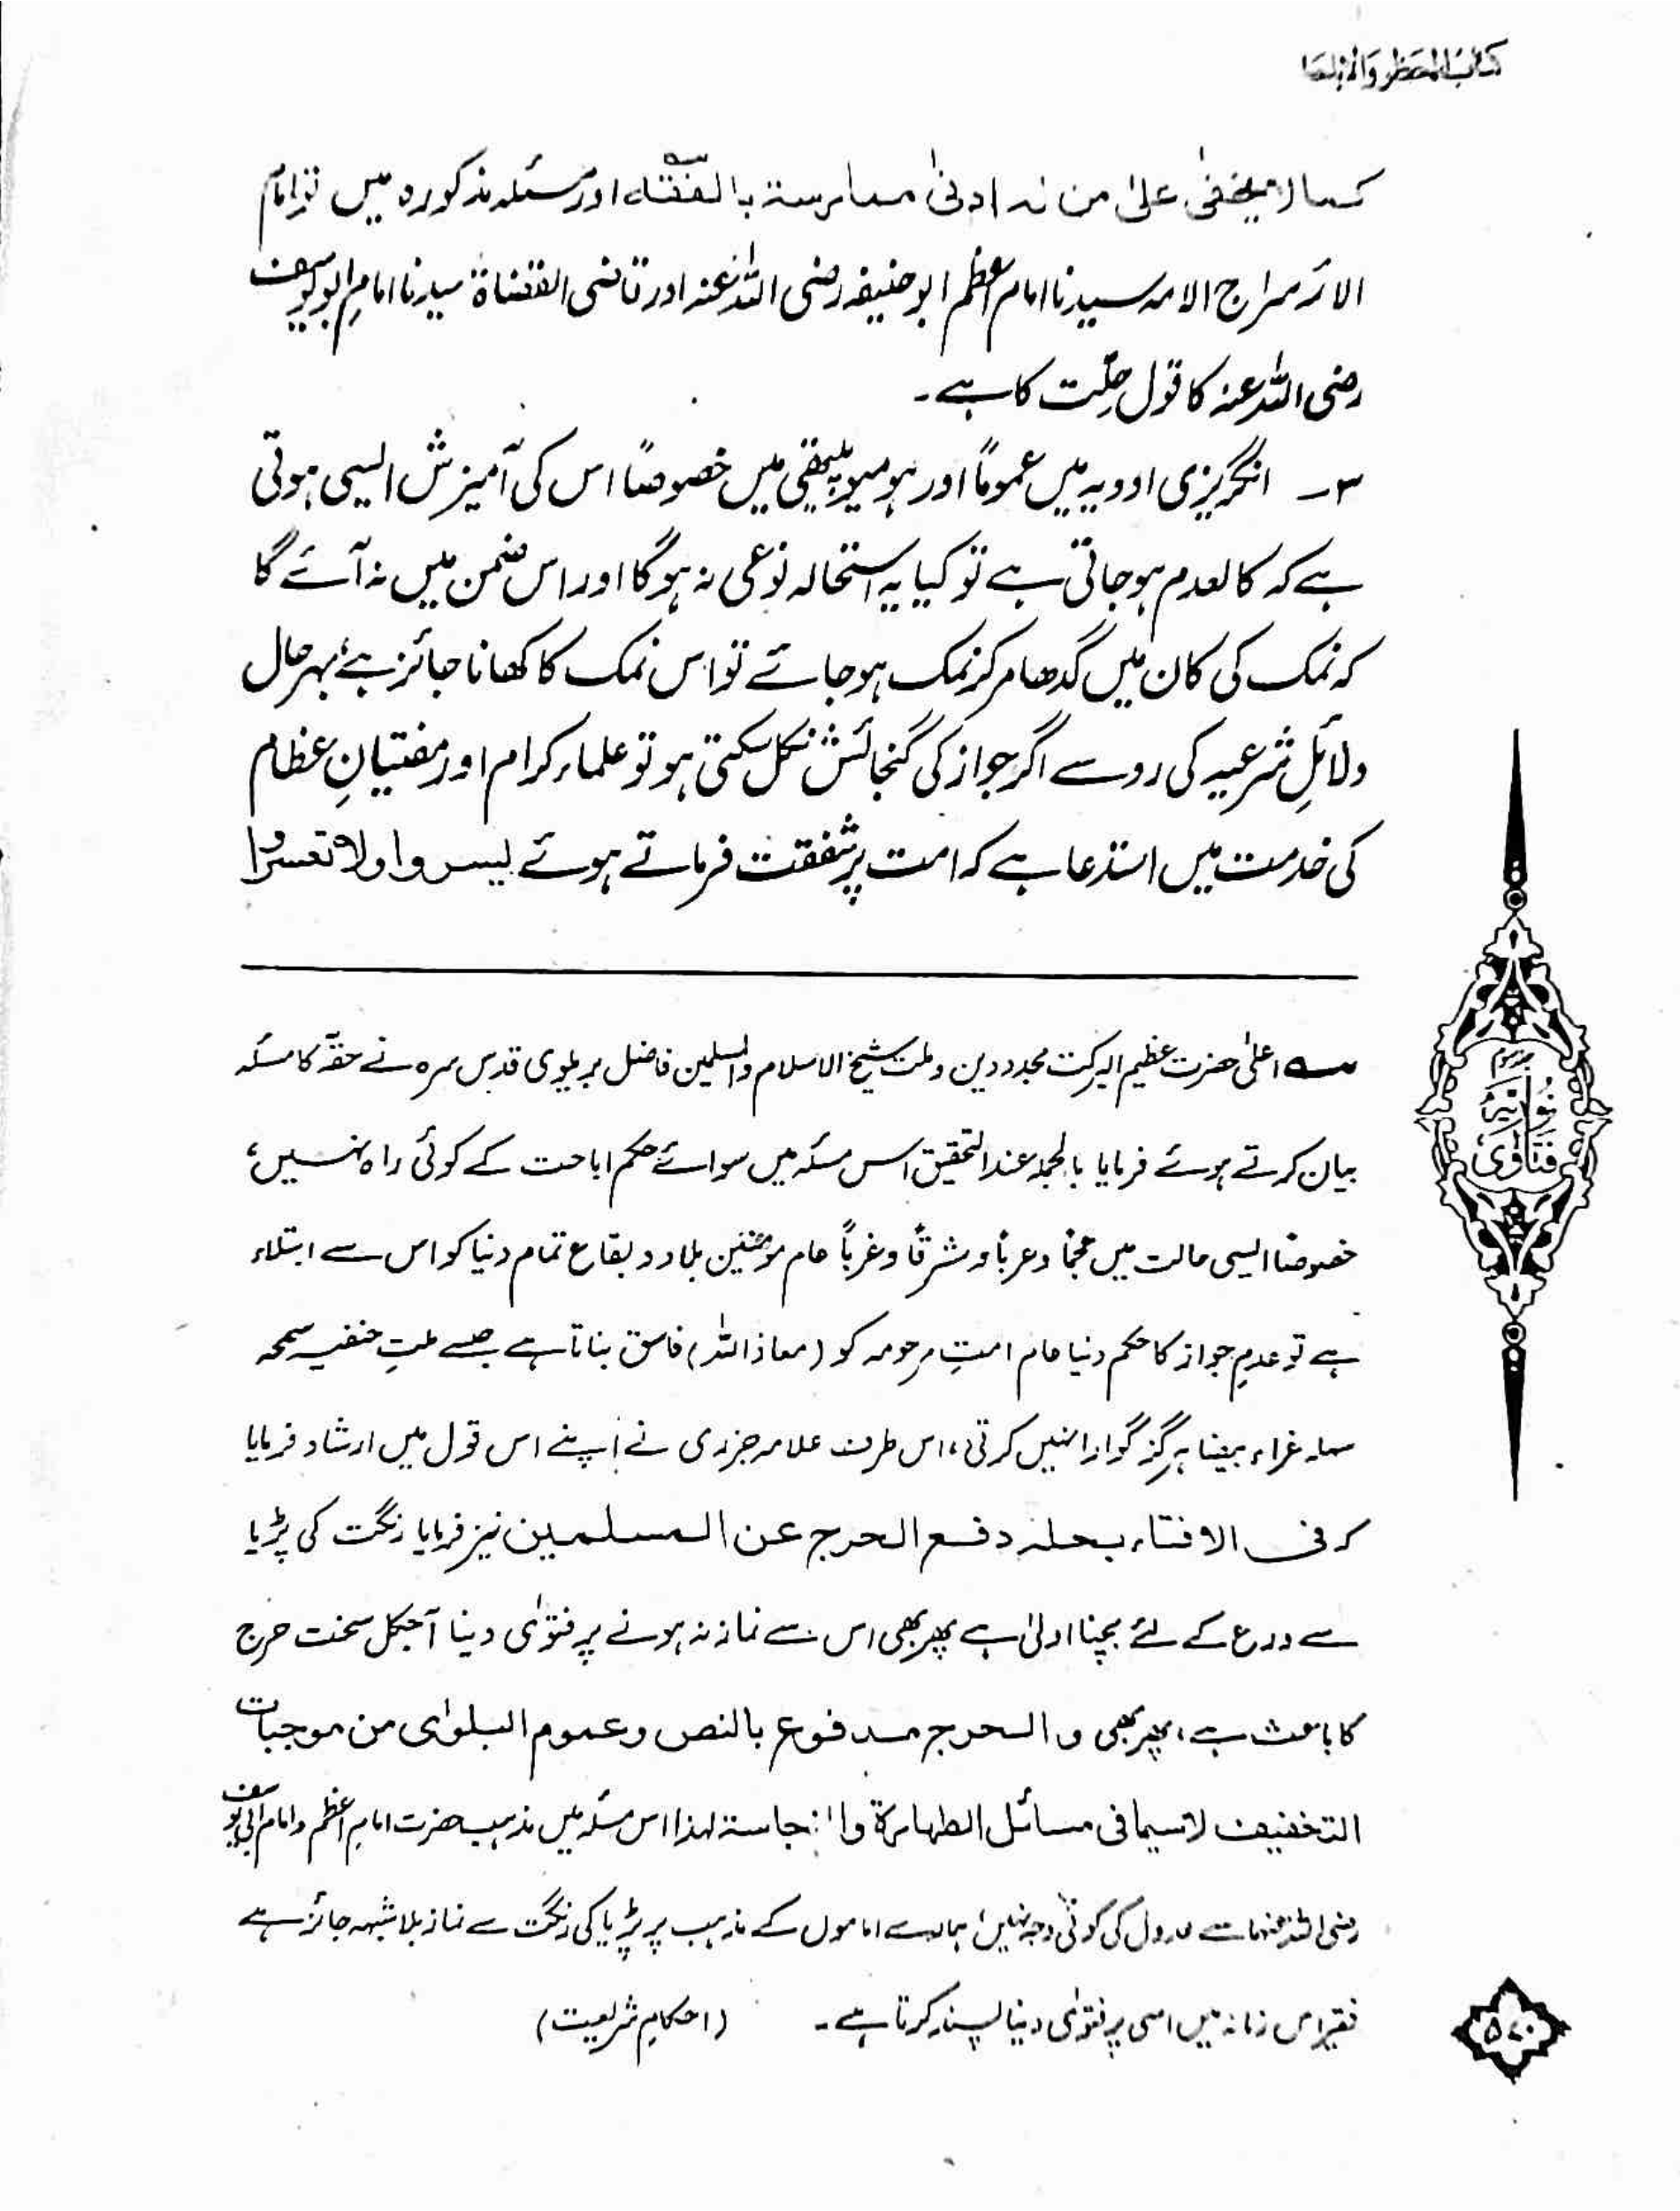 کتاب الحظر والاباحة
کما لا یخفیٰ علیٰ من لہ ادنیٰ ممارسة بالفقہ اور مسئلہ مذکورہ میں تو امام
الائمہ سراج الامہ سیدنا امام اعظم ابو حنیفہ رضی اللہ عنہ اور قاضی القضاة سیدنا امامِ ابو یوسف
رضی اللہ عنہ کا قول حِلّت کا ہے۔
۳۔ انگریزی ادویہ میں عموماً اور ہومیوپیتھی میں خصوصاً اس کی آمیزش ایسی ہوتی
ہے کہ کالعدم ہو جاتی ہے تو کیا یہ استحالہ نوعی نہ ہوگا اور اس ضمن میں نہ آئے گا
کہ نمک کی کان میں گدھا مر کر نمک ہو جائے تو اس نمک کا کھانا جائز ہے، بہر حال
دلائلِ شرعیہ کی رو سے اگر جواز کی گنجائش نکل سکتی ہو تو علماء کرام اور مفتیانِ عظام
کی خدمت میں استدعا ہے کہ امت پر شفقت فرماتے ہوئے یسروا ولا تعسروا
؎ اعلیٰ حضرت عظیم البرکت مجدد دین و ملت شیخ الاسلام والمسلمین فاضل بریلوی قدس سرہ نے حقّہ کا مسئلہ
بیان کرتے ہوئے فرمایا بالجملہ عند التحقیق اس مسئلہ میں سوائے حکم اباحت کے کوئی راہ نہیں؛
خصوصاً ایسی حالت میں عجماً و عرباً و شرقاً و غرباً عام مومنین بلاد و بقاع تمام دنیا کو اس سے ابتلاء
ہے تو عدمِ جواز کا حکم دینا عام امتِ مرحومہ کو (معاذ اللہ) فاسق بناتا ہے جسے ملتِ حنفیہ سمحہ
سہلہ غراء بیضا ہرگز گوارا نہیں کرتی، اس طرف علامہ جزری نے اپنے اس قول میں ارشاد فرمایا
کہ فی الافتاء بحلہ دفع الحرج عن المسلمین نیز فرمایا رنگت کی پڑیا
سے ورع کے لئے بچنا اولیٰ ہے پھر بھی اس سے نماز نہ ہونے پر فتوٰی دینا آجکل سخت حرج
کا باعث ہے، پھر بھی والحرج مدفوع بالنص وعموم البلوٰی من موجبات
التخفیف لاسیما فی مسائل الطهارة والنجاسة لہذا اس مسئلہ میں مذہب حضرت امامِ اعظم و امام ابی یوسف
رضی اللہ عنہما سے عدول کی کوئی وجہ نہیں؛ ہمارے اماموں کے مذہب پر پڑیا کی رنگت سے نماز بلا شبہہ جائز ہے
فقیر اس زمانہ میں اسی پر فتوٰی دینا پسند کرتا ہے۔ (احکامِ شریعت)
فتاویٰ نوریہ
۵۷۰